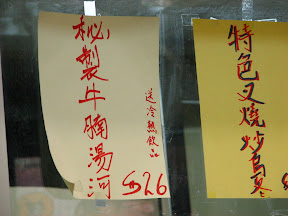 秘製牛腩湯河
$26
送冷熱飲品
特色叉燒炒烏冬